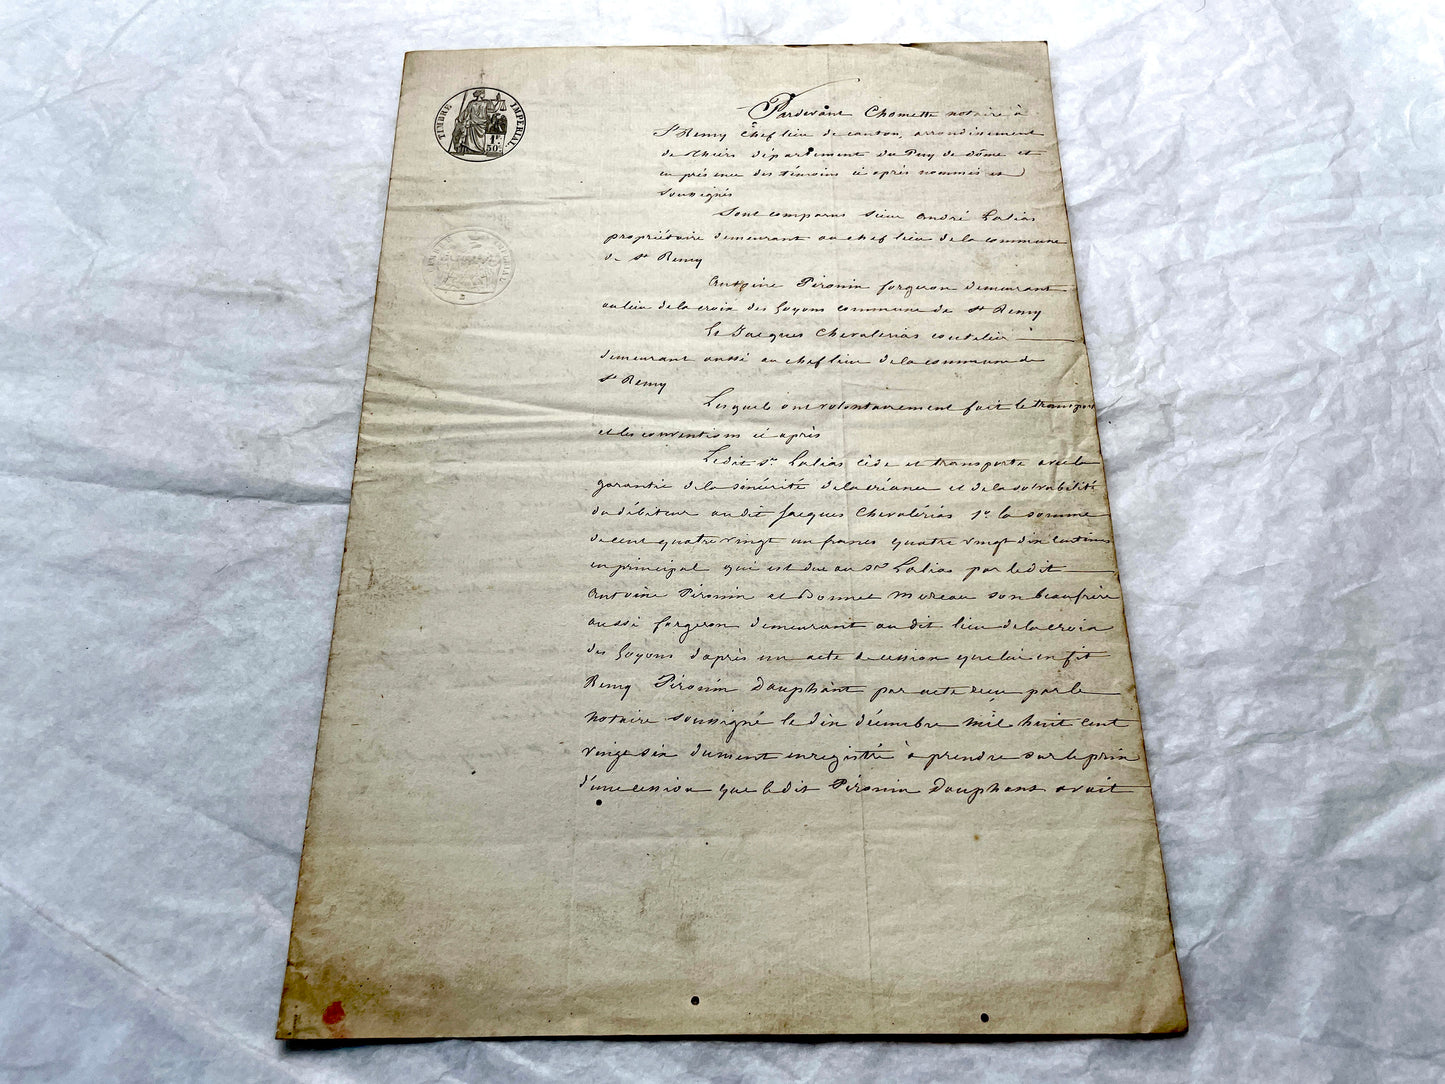 TIMBRE IMPERIAL
1F 50c
Pardevant Chomette notaire à
St Remy chef lieu de canton, arrondissement
de Thiers département du Puy de dôme et
en présence des témoins ci après nommés et
soussignés
Sont comparus sieur André Lalias
propriétaire demeurant au chef lieu de la commune
de St Remy
Antoine Pironin forgeron demeurant
au lieu de la croix des Goyons commune de St Remy
Et Jacques Chevalérias coutelier
demeurant aussi au chef lieu de la commune de
St Remy
Lesquels ont volontairement fait le transport
et les conventions ci après
Ledit Sr Lalias cède et transporte avec la
garantie de la sincérité de la créance et de la solvabilité
du débiteur au dit Jacques Chevalérias 1° la somme
de cent quatre vingt un francs quatre vingt dix centimes
en principal qui est due au Sr Lalias par ledit
Antoine Pironin et Bonnet Moreau son beaufrère
aussi forgeron demeurant au dit lieu de la croix
des Goyons d'après un acte de cession que lui en fit
Remy Pironin Dauphant par acte reçu par le
notaire soussigné le dix décembre mil huit cent
vingt six dument enregistré à prendre sur le prix
d'une cession que ledit Pironin Dauphant avait